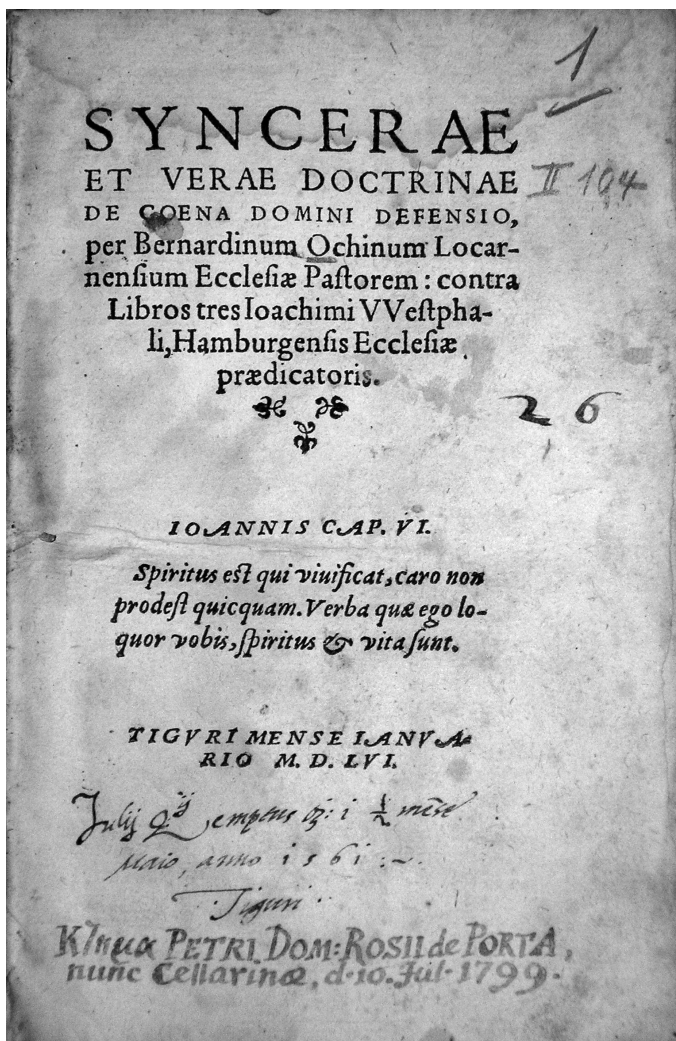 1
SYNCERAE
ET VERAE DOCTRINAE
II 104
DE COENA DOMINI DEFENSIO,
per Bernardinum Ochinum Locar-
nensium Ecclesiæ Pastorem : contra
Libros tres Ioachimi VVestpha-
li, Hamburgensis Ecclesiæ
prædicatoris.
26
IOANNIS CAP. VI.
Spiritus est qui viuificat, caro non
prodest quicquam. Verba quæ ego lo-
quor vobis, spiritus & vita sunt.
TIGVRI MENSE IANVA-
RIO M. D. LVI.
Julij emptus i ½ mēse
Maio, anno 1561 :~
Tiguri
PETRI DOM: ROSII de PORTA,
nunc Cellarinæ, d. 10. Jul. 1799.